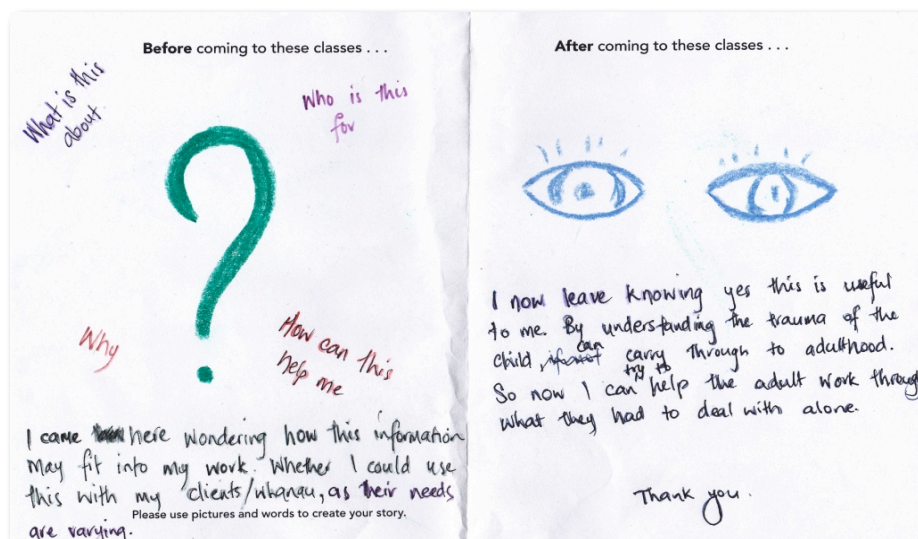 Before coming to these classes . . .
What is this
about.
Who is this
for
Why
How can this
help me
I came here wondering how this information
may fit into my work. Whether I could use
this with my clients/whanau, as their needs
are varying.
Please use pictures and words to create your story.
After coming to these classes . . .
I now leave knowing yes this is useful
to me. By understanding the trauma of the
child, can carry through to adulthood.
So now I can try to help the adult work through
what they had to deal with alone.
Thank you.